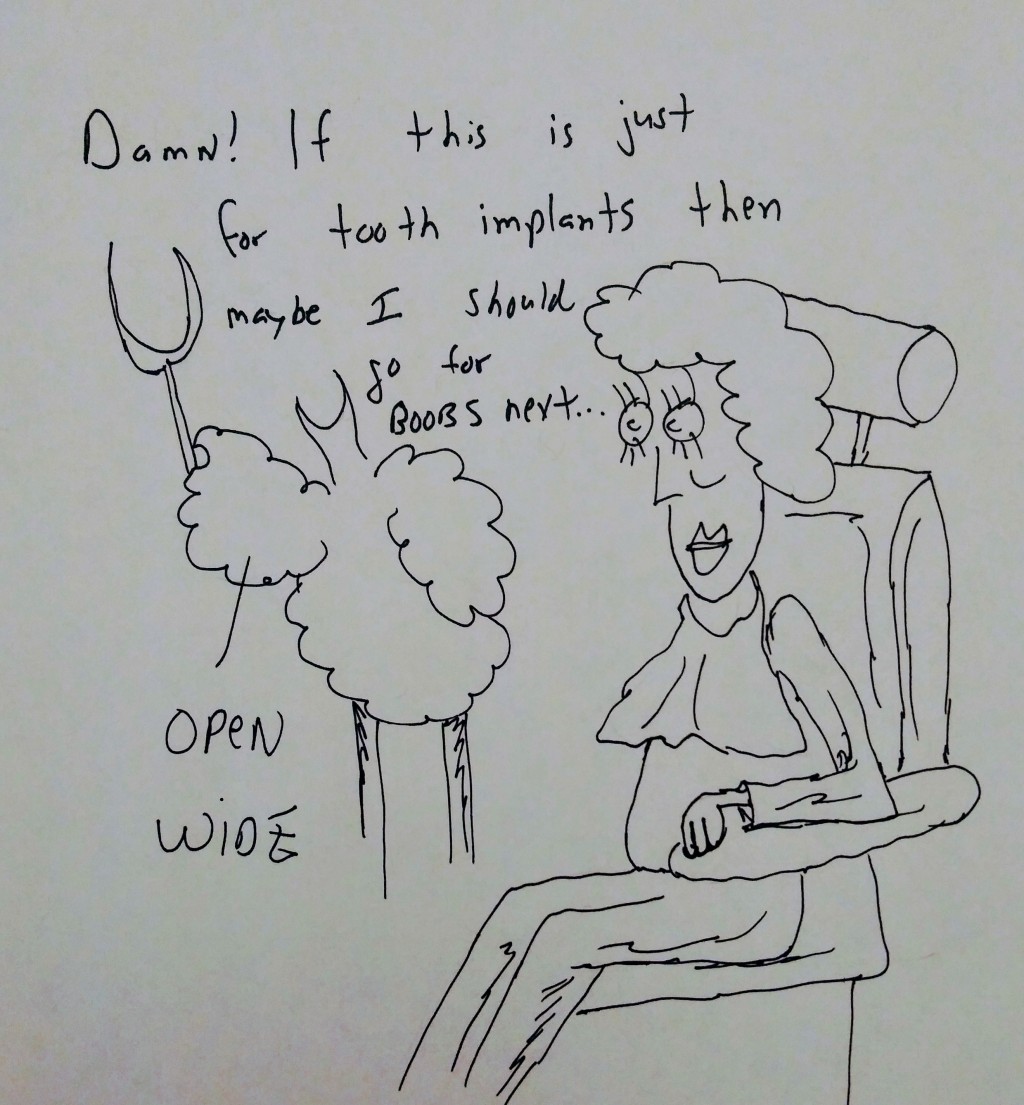 Damn! If this is just
for tooth implants then
maybe I should
go for
BOOBS next...
OPEN
WIDE